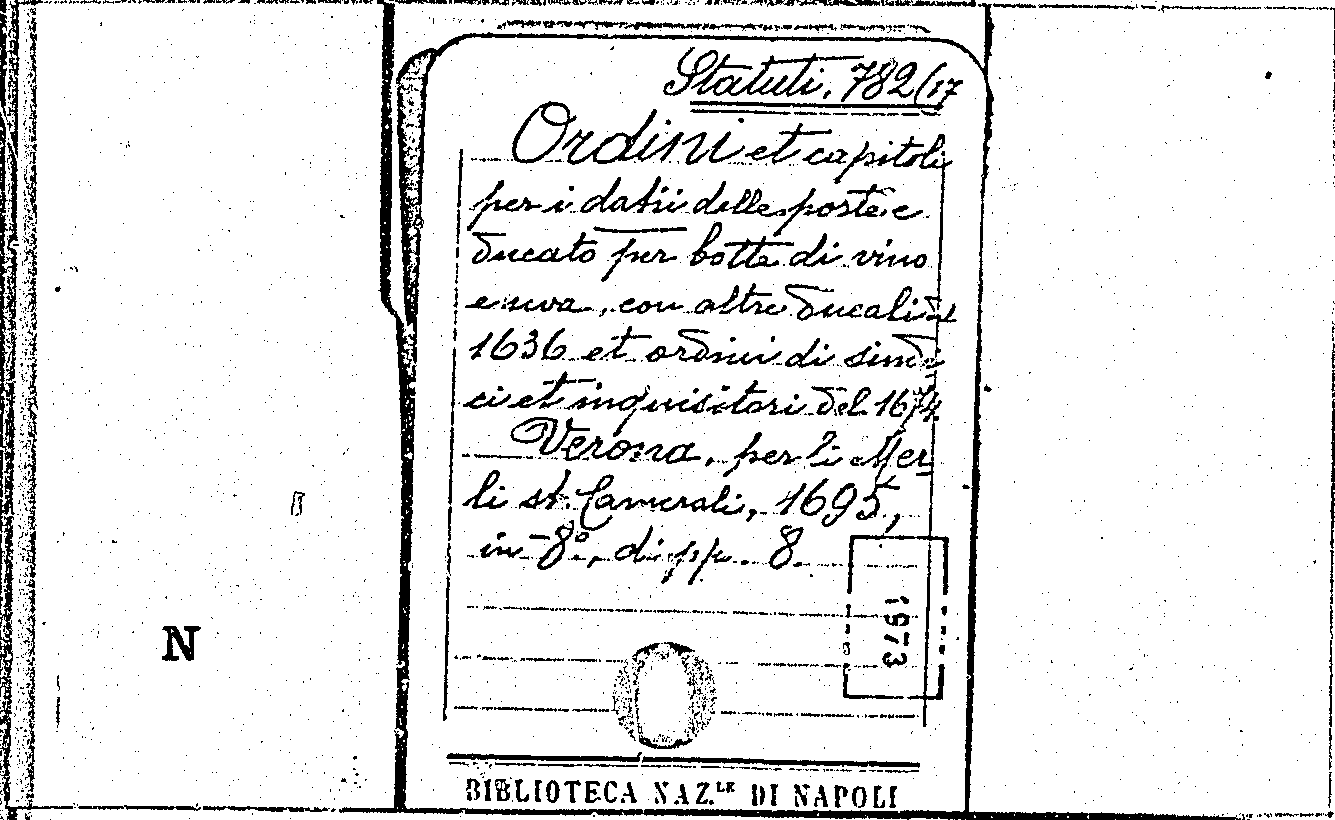 Statuti. 782(17
Ordini et capitoli
per i datii delle poste e
ducato per botte di vino
e uva, con altre ducali del
1636 et ordini di sinda
ci et inquisitori del 1674.
Verona, per li Mer
li st. Camerali, 1695,
in-8°, di pp. 8.
1973
N
BIBLIOTECA NAZ.LE DI NAPOLI